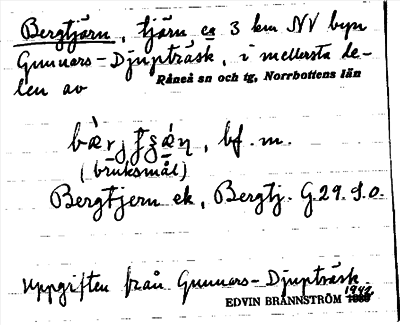 Bergtjärn, tjärn ca 3 km NV byn
Gunnars-Djupträsk, i mellersta de-
len av Råneå sn och tg, Norrbottens län
bæ̀rjʈʂæ̀ɳ, bf. m.
(bruksmål)
Bergtjern ek, Bergtj. G.29. S.o.
Uppgiften från Gunnars-Djupträsk
EDVIN BRÄNNSTRÖM 1942